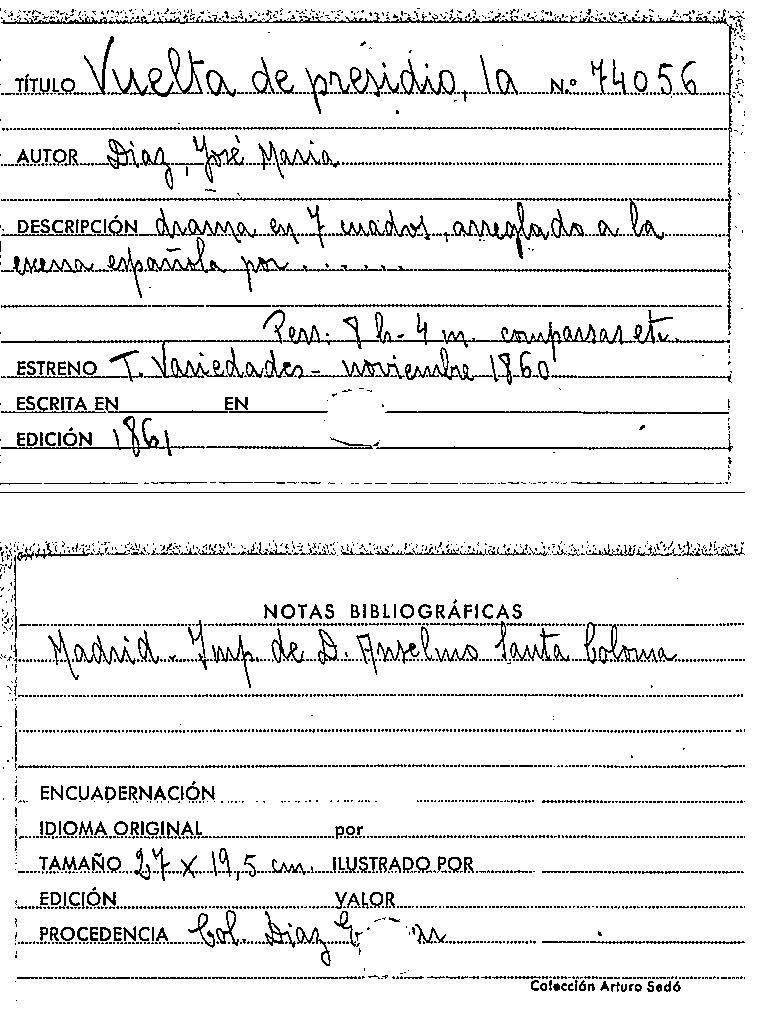 TÍTULO Vuelta de presidio, la N.º 74056
AUTOR Diaz, José Maria
DESCRIPCIÓN drama en 7 cuadros, arreglado a la
escena española por . . . . . .
Pers: 8 h- 4 m. comparsas etc.
ESTRENO T. Variedades- noviembre 1860
ESCRITA EN EN
EDICIÓN 1861
NOTAS BIBLIOGRÁFICAS
Madrid- Imp. de D. Anselmo Santa Coloma
ENCUADERNACIÓN
IDIOMA ORIGINAL por
TAMAÑO 27 x 19,5 cm. ILUSTRADO POR
EDICIÓN VALOR
PROCEDENCIA Col. Diaz
Colección Arturo Sedó